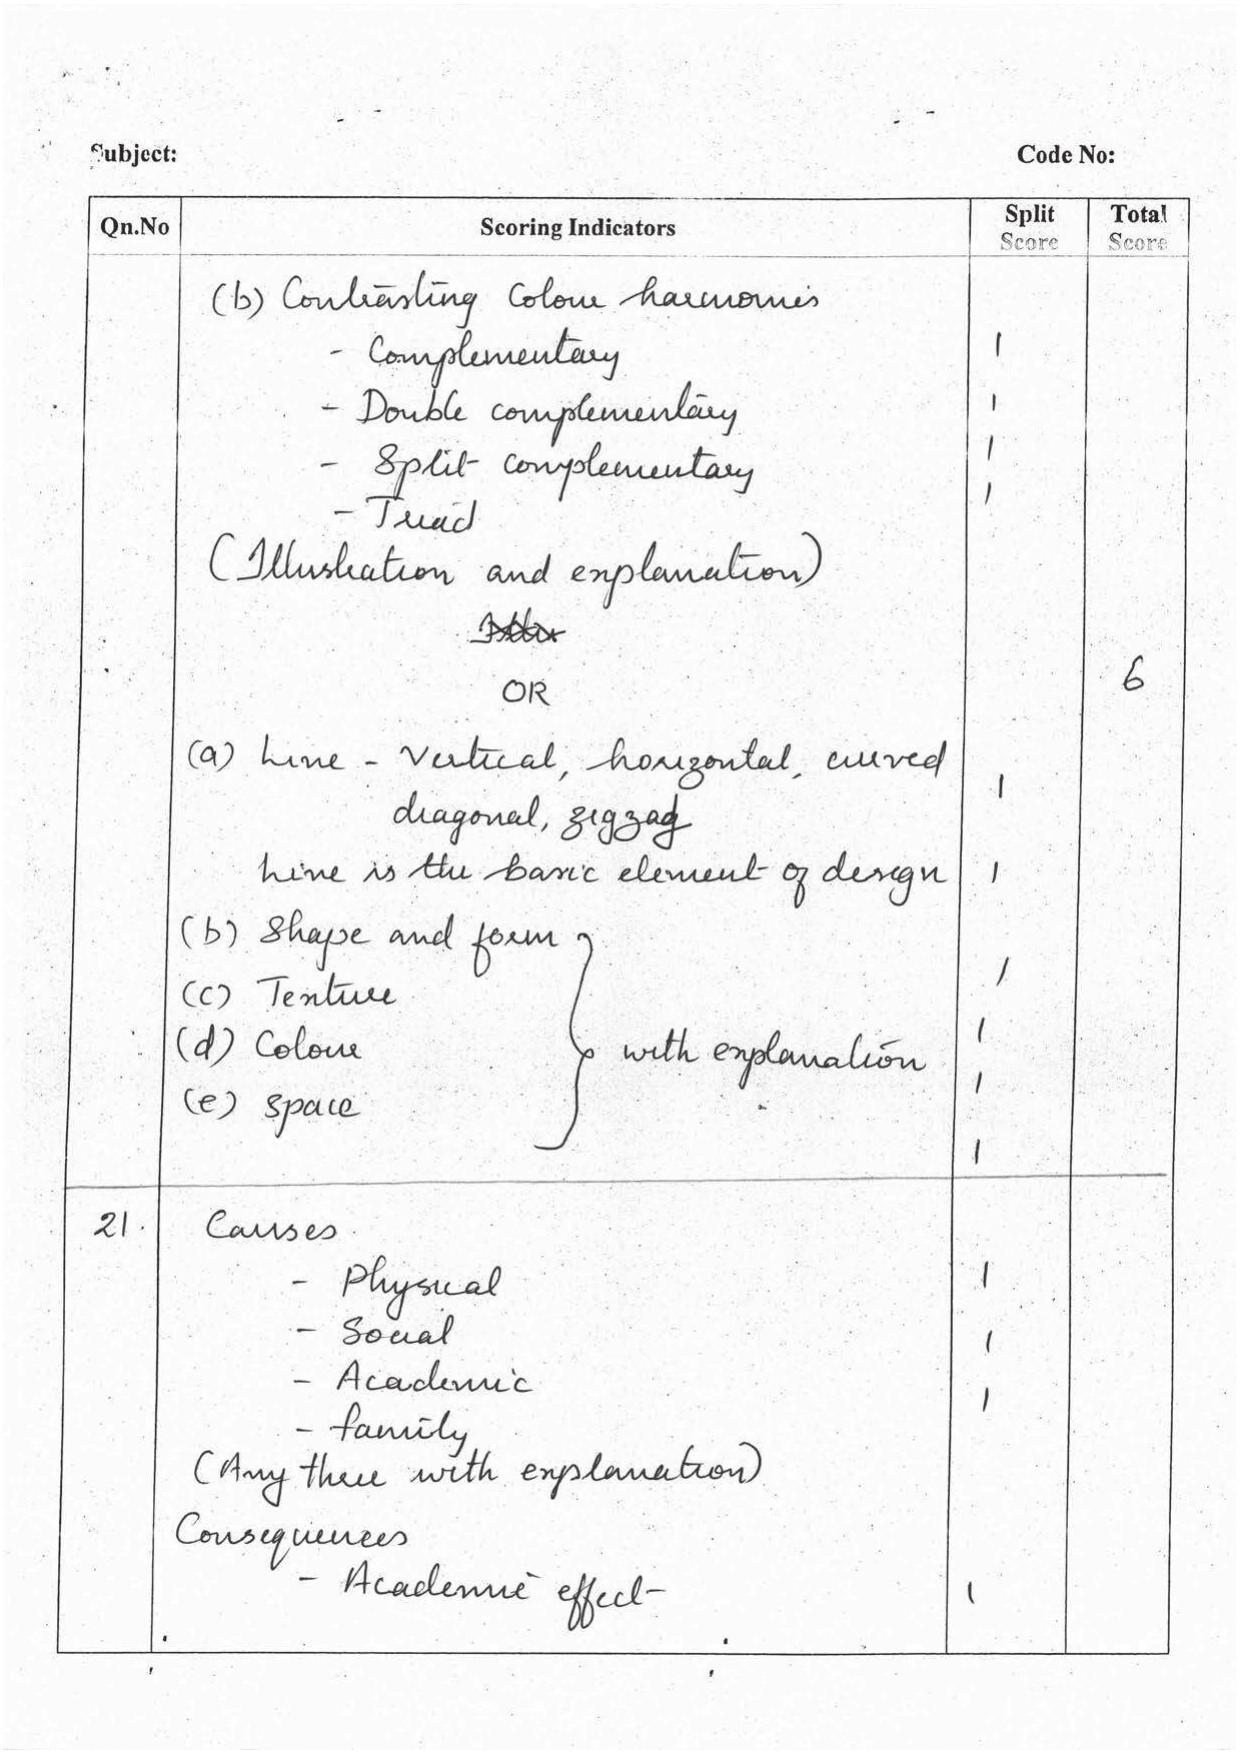 Subject: Code No:
Qn.No Scoring Indicators Split Score Total Score
(b) Contrasting Colour harmonis
- Complementary 1
- Double complementary 1
- Split complementary 1
- Triad 1
(Illustration and explanation)
OR
6
(a) Line - Vertical, horizontal, curved
diagonal, zigzag 1
Line is the basic element of design 1
(b) Shape and form 1
(c) Texture 1
(d) Colour with explanation 1
(e) space 1
21. Causes
- Physical 1
- Social 1
- Academic 1
- family
(Any three with explanation)
Consequences
- Academic effect 1